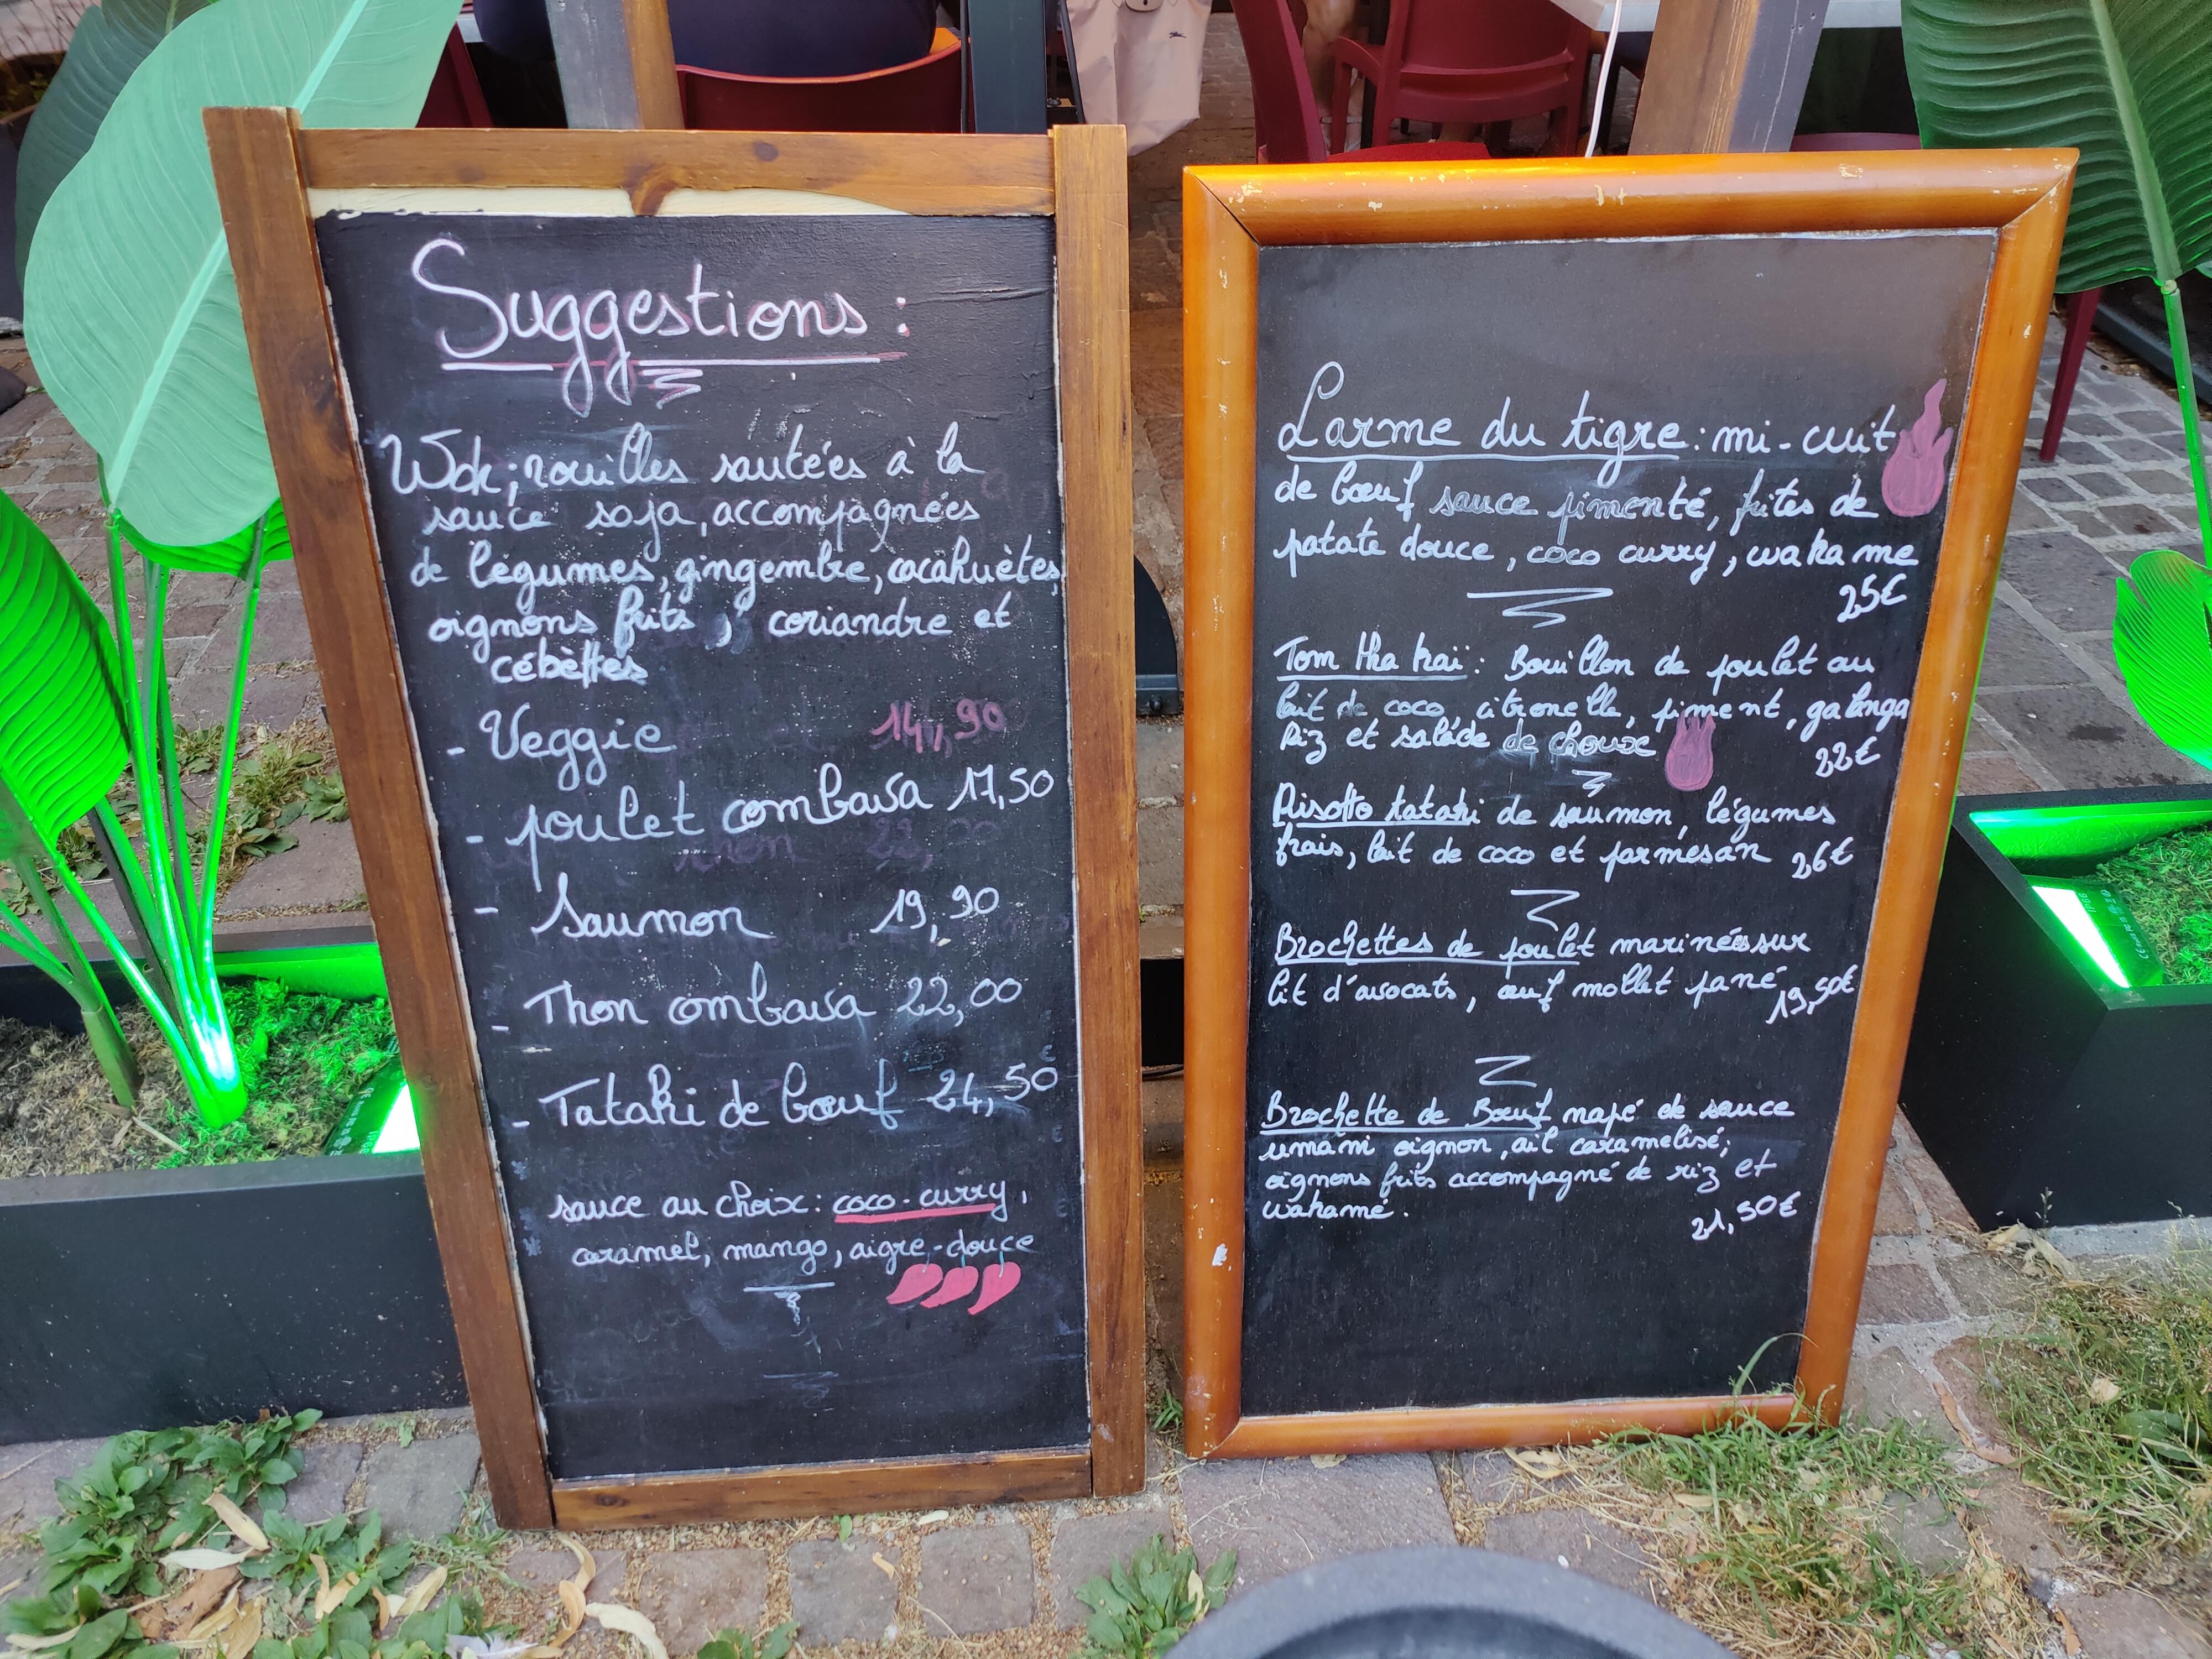 Suggestions :
Wok ; nouilles sautées à la
sauce soja, accompagnées
de légumes, gingembre, cacahuètes,
oignons frits, coriandre et
cébèttes
- Veggie 14,90
- poulet combava 17,50
- Saumon 19,90
- Thon ombava 22,00
- Tataki de bœuf 24,50
sauce au choix : coco-curry,
caramel, mango, aigre-douce
Larme du tigre : mi-cuit
de bœuf sauce pimenté, frites de
patate douce, coco curry, wakame
25€
Tom kha kaï : Bouillon de poulet au
lait de coco, citronelle, piment, galanga
Riz et salade de chouxe
22€
Risotto tataki de saumon, légumes
frais, lait de coco et parmesan 26€
Brochettes de poulet marinées sur
lit d'avocats, œuf mollet pané 19,50€
Brochette de Bœuf napé de sauce
umami oignon, ail caramelisé,
oignons frits accompagné de riz et
wakamé.
21,50€